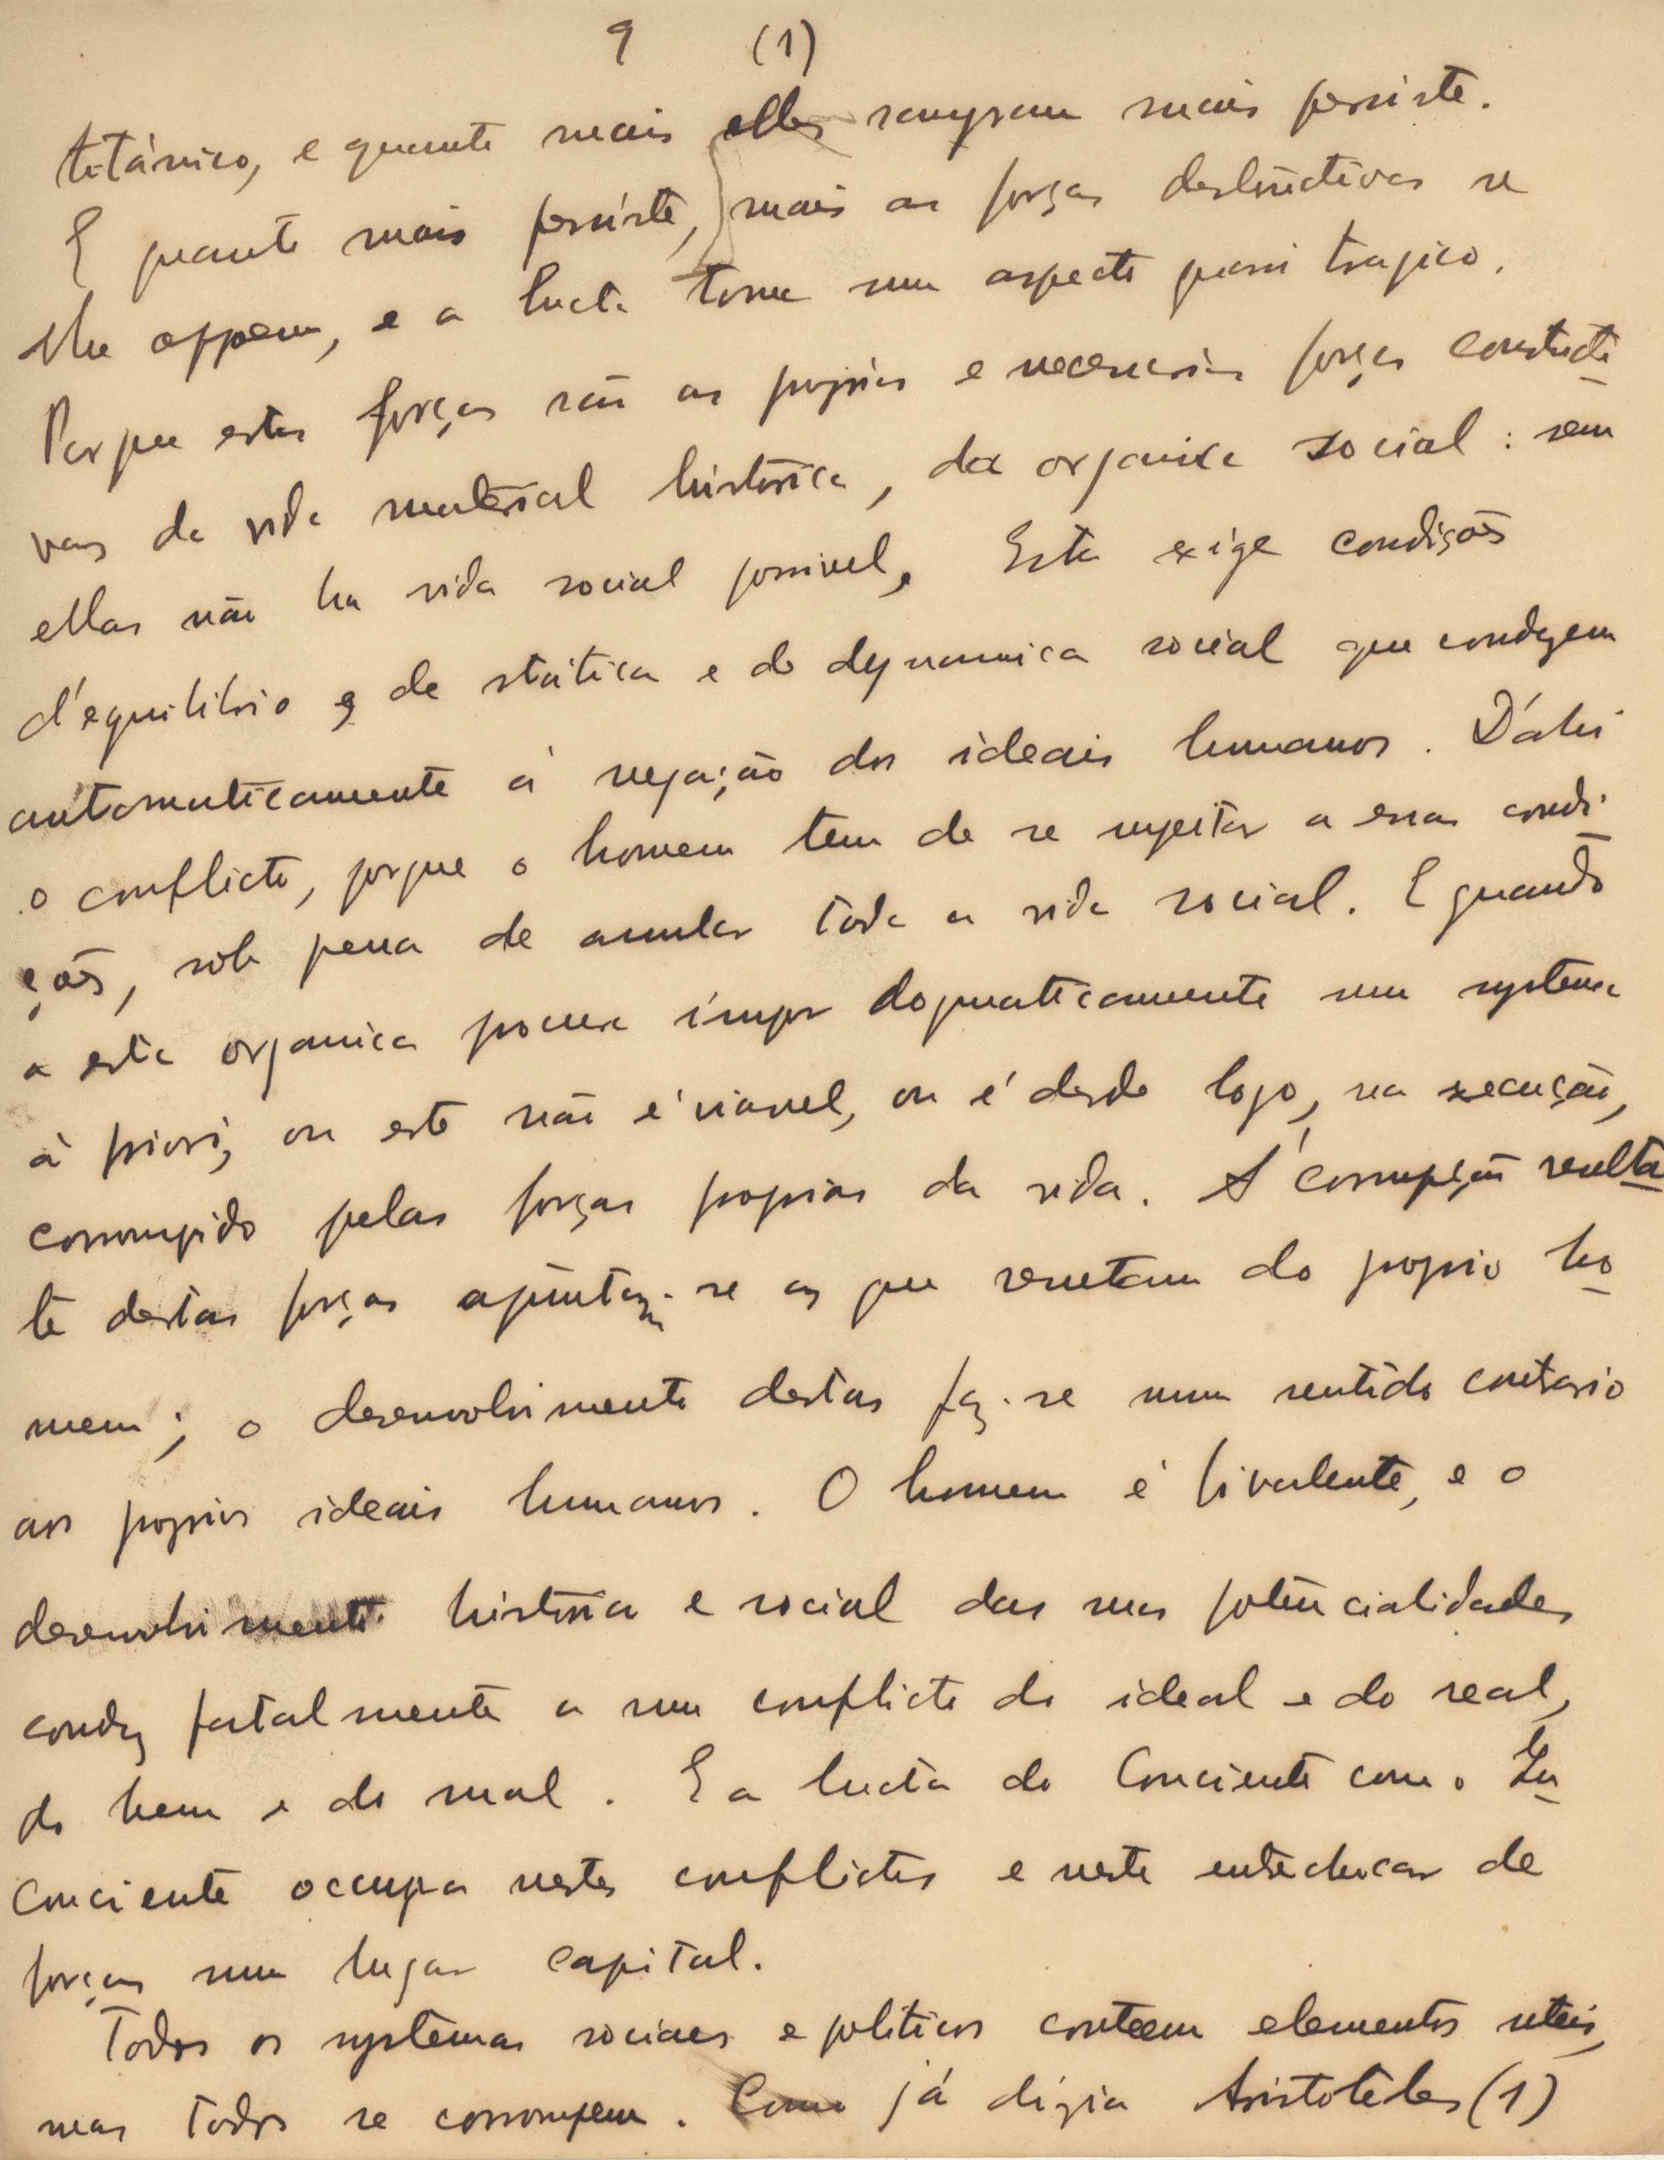 9 (1)
titánico, e quanto mais elles rangram mais persiste.
E quanto mais persiste, mais as forças destructivas se
lhe oppem, e a lucta toma um aspecto quasi tragico.
Porque estas forças são as proprias e necessarias forças constructi-
vas da vida material historica, da organica social: sem
ellas não ha vida social possivel, Esta exige condições
d'equilibrio e de státtica e de dynamica social que conduzem
automaticamente á negação dos ideais humanos. D'áhi
o conflicto, porque o homem tem de se sujeitar a essas condi-
ções, sob pena de anular toda a vida social. E quando
a esta organica procura impor dogmaticamente um systema
à priori, ou este não é viavel, ou é desde logo, na execução,
corrompido pelas forças proprias da vida. Á corrupção resulta-
te destas forças ajuntam-se as que resultam do proprio ho-
mem; o desenvolvimento destas faz-se num sentido contrario
aos proprios ideais humanos. O homem é bivalente, e o
desenvolvimento historico e social das suas potencialidades
conduz fatalmente a um conflicto do ideal e do real,
do bem e do mal. E a lucta do Conciente com o In-
conciente occupa nestes conflictos e neste entrechocar de
forças um lugar capital.
Todos os systemas sociaes e politicos conteem elementos uteis,
mas todos se corrompem. Como já dizia Aristoteles (1)